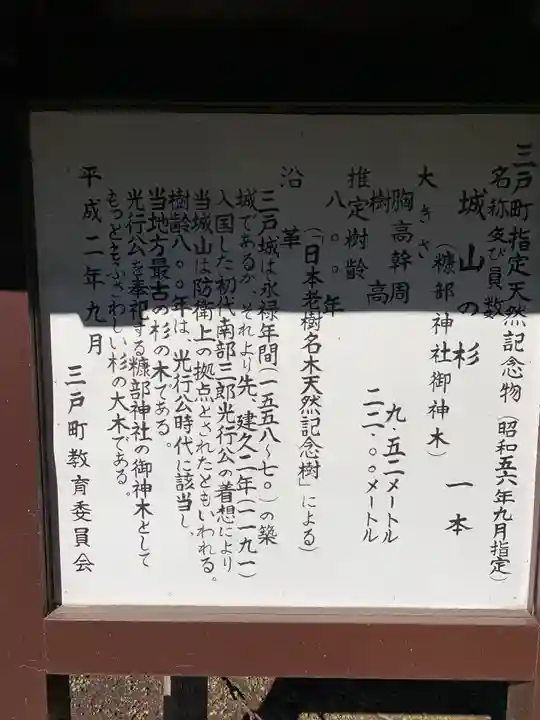 三戸町指定天然記念物(昭和五六年九月指定)
名称及び員数
城山の杉 一本
(糠部神社御神木)
大きさ
胸高幹周 九.五二メートル
樹高 二二.〇〇メートル
推定樹齢
八〇〇年
(「日本老樹名木天然記念樹」による)
沿革
三戸城は永禄年間(一五五八~七〇)の築
城であるが、それより先、建久二年(一一九一)
入国した初代南部三郎光行公の着想により
当城山は防衛上の拠点とされたともいわれる。
樹齢八〇〇年は、光行公時代に該当し、
当地方最古の杉の木である。
光行公を奉祀する糠部神社の御神木として
もっともふさわしい杉の大木である。
平成二年九月
三戸町教育委員会